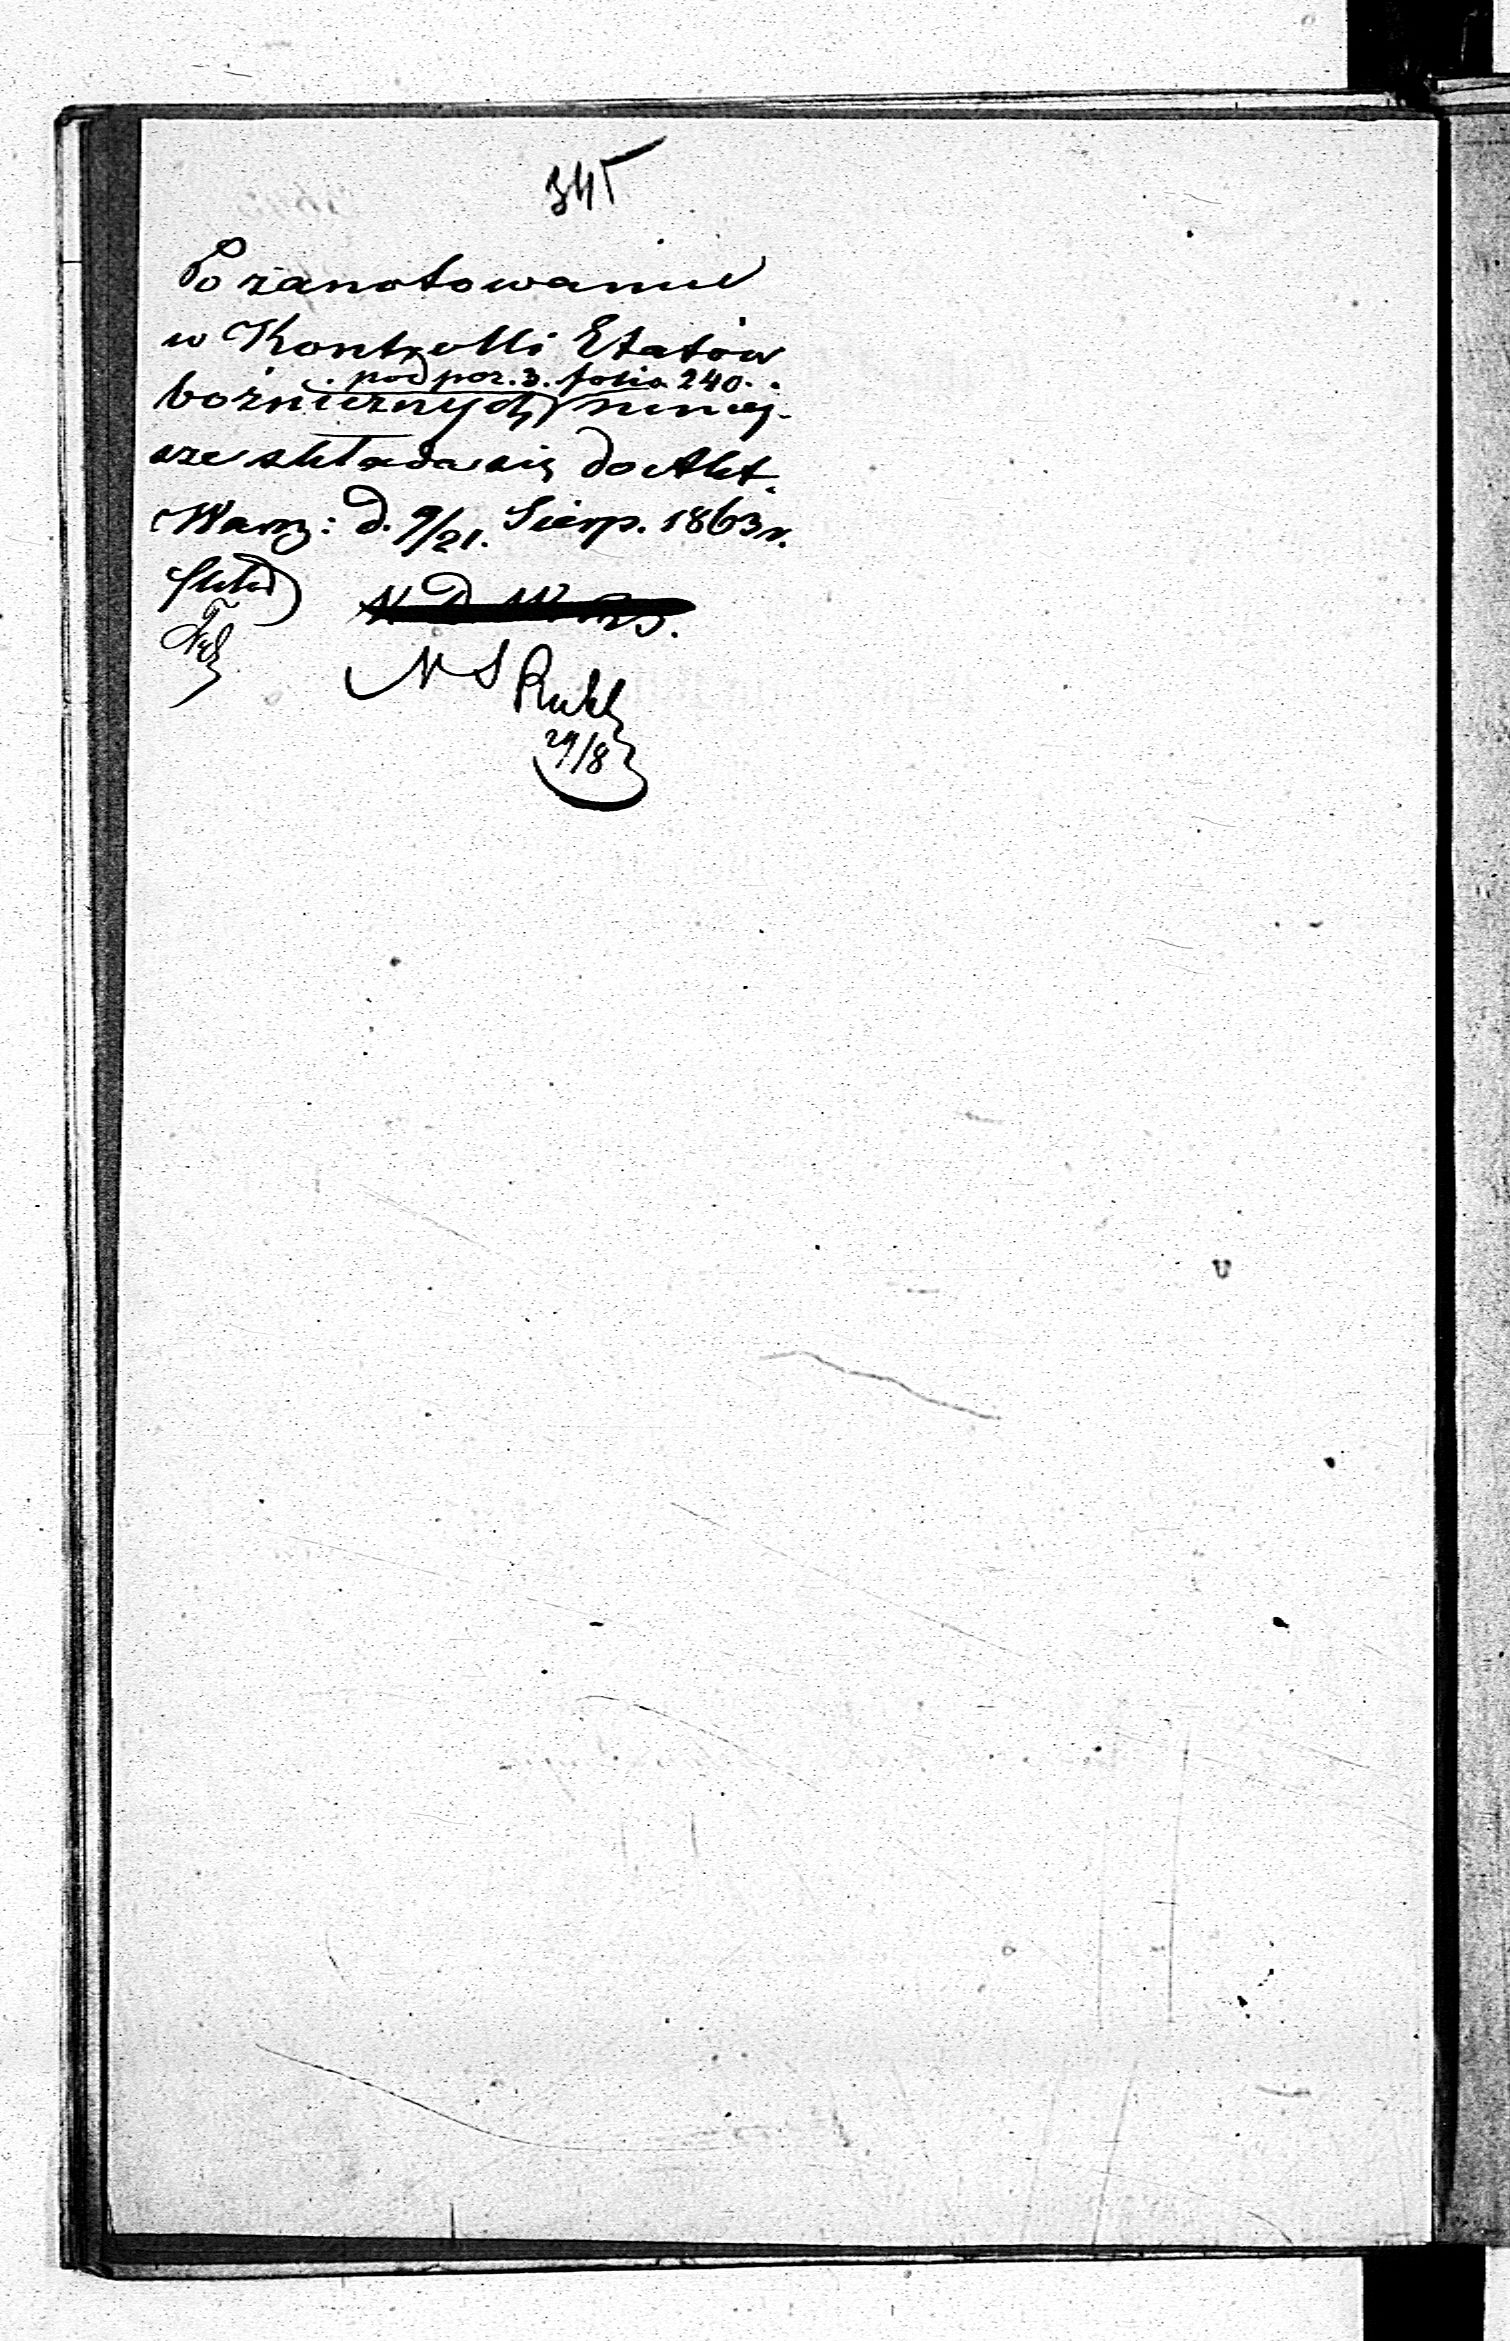 345
Po zanotowaniu
w Kontrolli Etatów
pod poz. 3. folio 240.
bożniczych niniej-
sze składa się do Akt.
Warsz: d. 9/21. Sierp. 1863 r.
N S
29/8